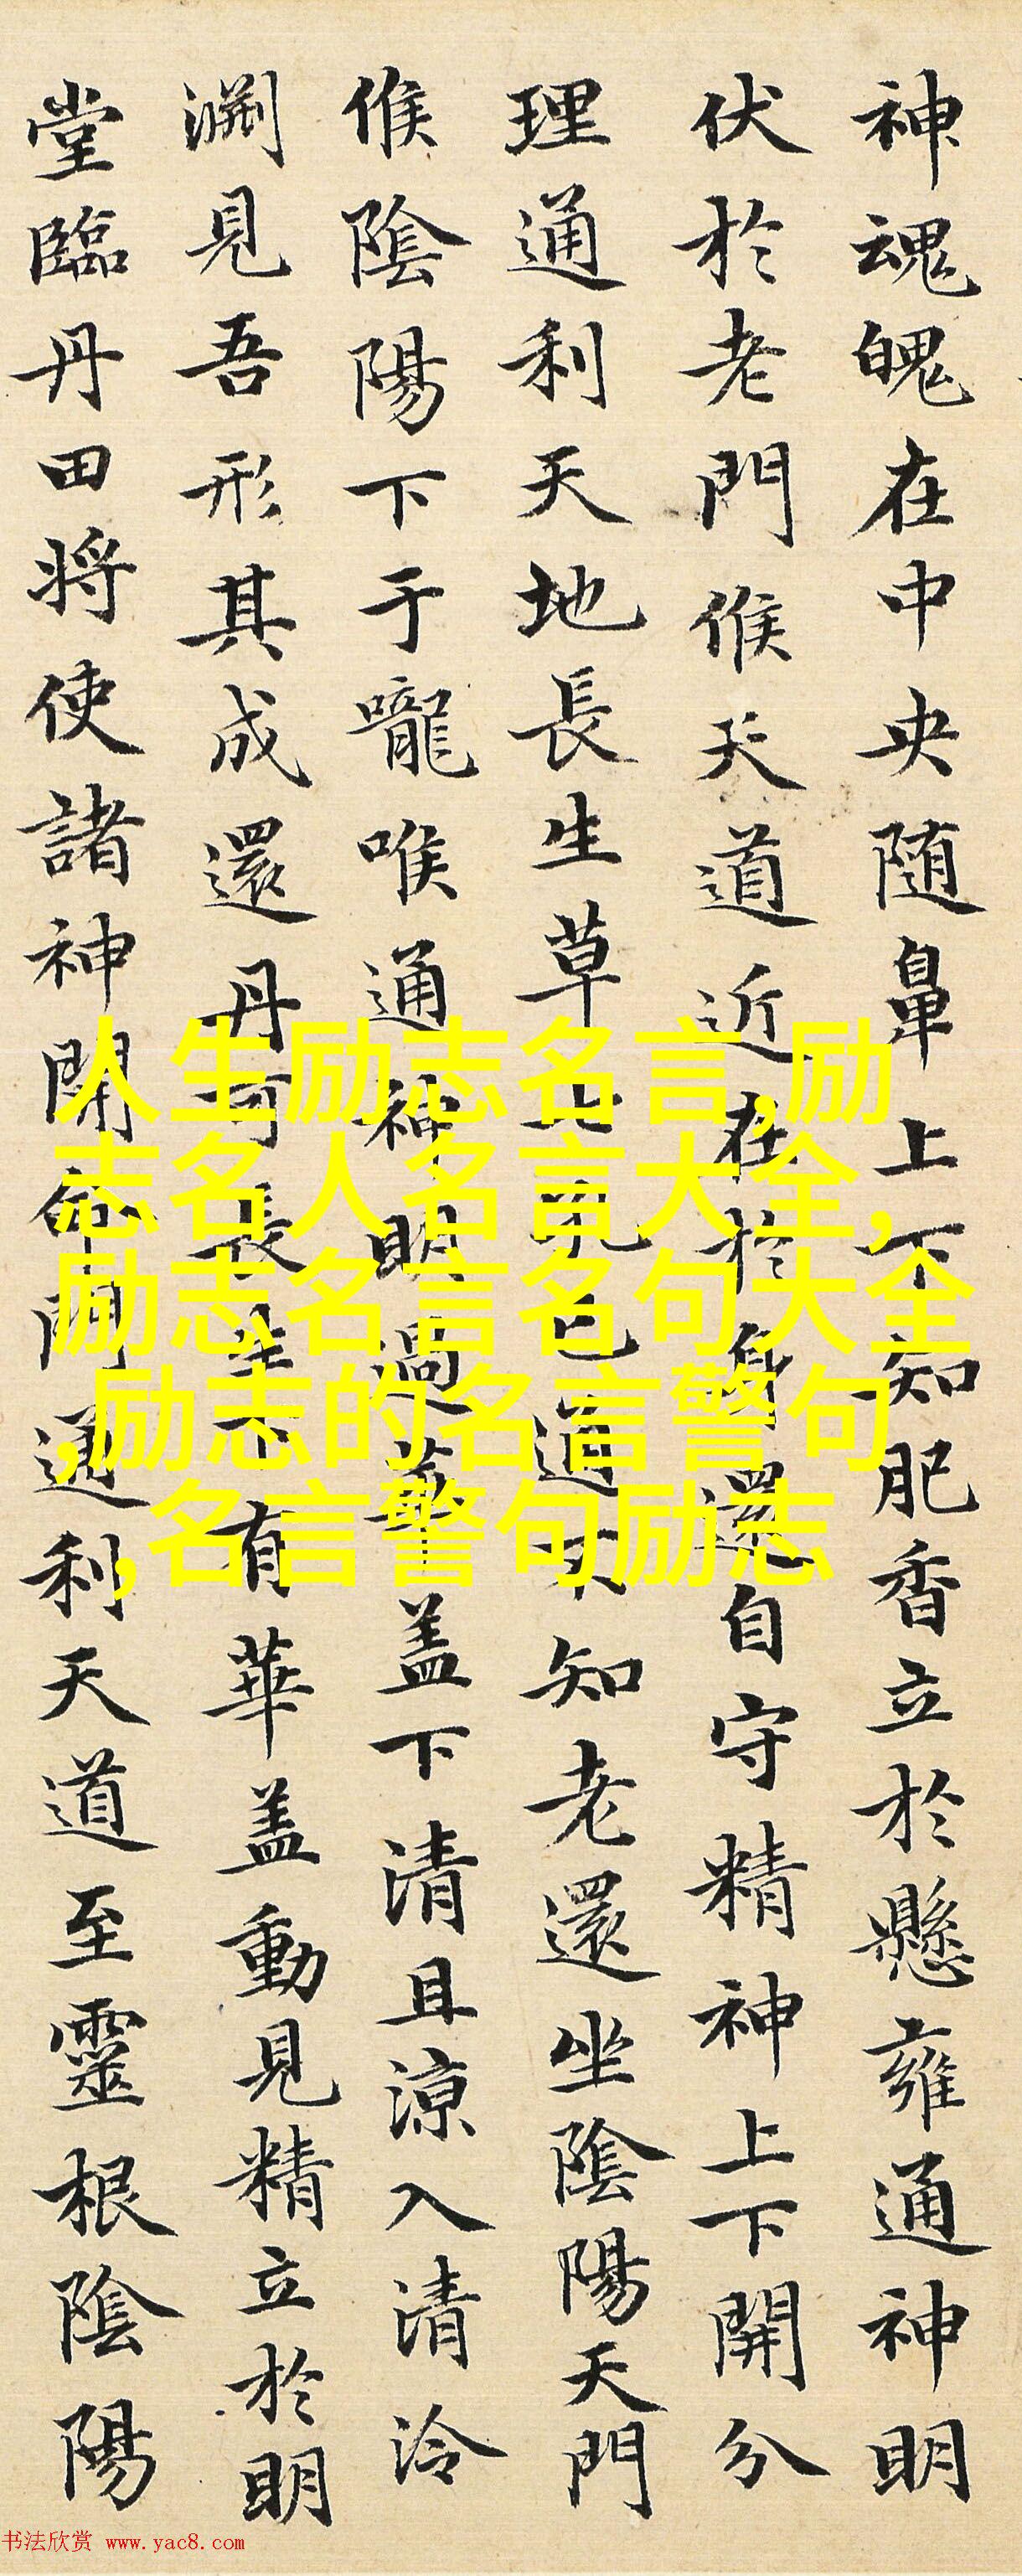 神魂魄在中央随鼻上下知肥香立於懸雍通神明
伏於老門候天道近在於身還自守精神上下開分
理通利天地長生草七孔已通不知老還坐陰陽天門
候陰陽下于嚨喉通神明過華盖下清且涼入清泠
淵見吾形其成還丹可長生下有華盖動見精立於明
堂臨丹田将使諸神開命門通利天道至靈根陰陽
人生励志名言,励
志名人名言大全,
励志名言名句大全
,励志的名言警句
,名言警句励志
书法欣赏 www.yac8.com